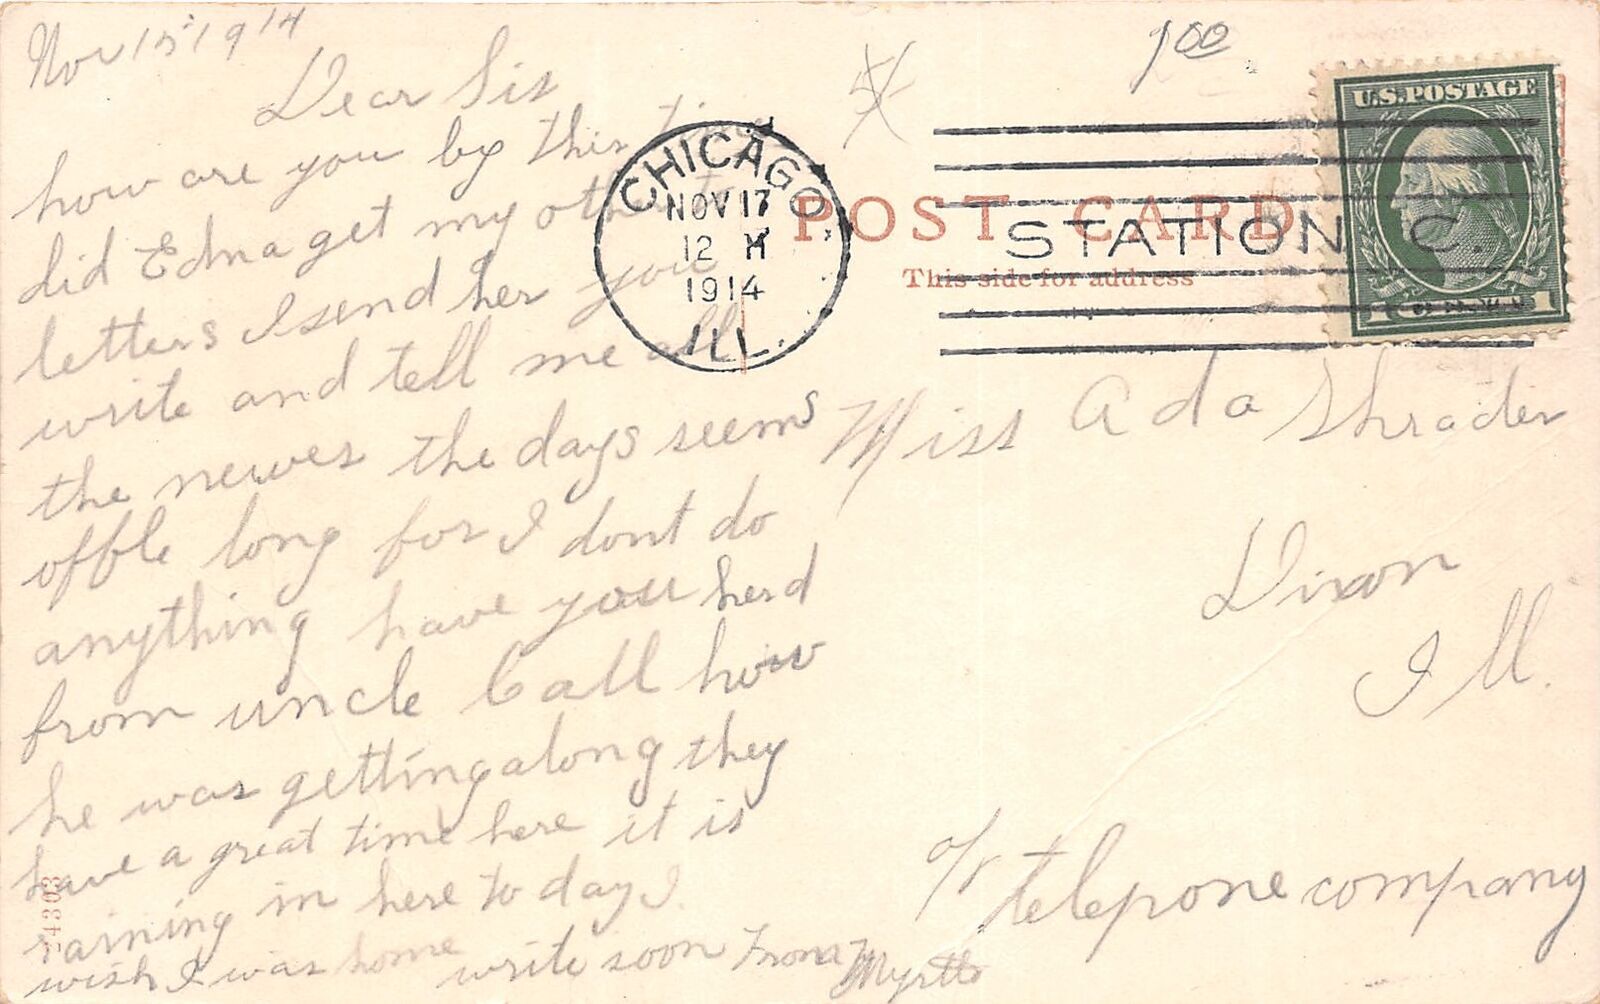 Nov 15 1914
Dear Sis
how are you by this time
did Edna get my other
letters I send her you
write and tell me all
the newes the days seems
offle long for I dont do
anything have you herd
from uncle Call how
he was getting along they
have a great time here it is
raining in here to day I
wish I was home write soon From Myrtle
24303
1 00
CHICAGO
NOV 17
12 M
1914
ILL.
STATION C.
U.S. POSTAGE
POST CARD
This side for address
Miss Ada Shrader
Dixon
Ill.
c/o Telepone company